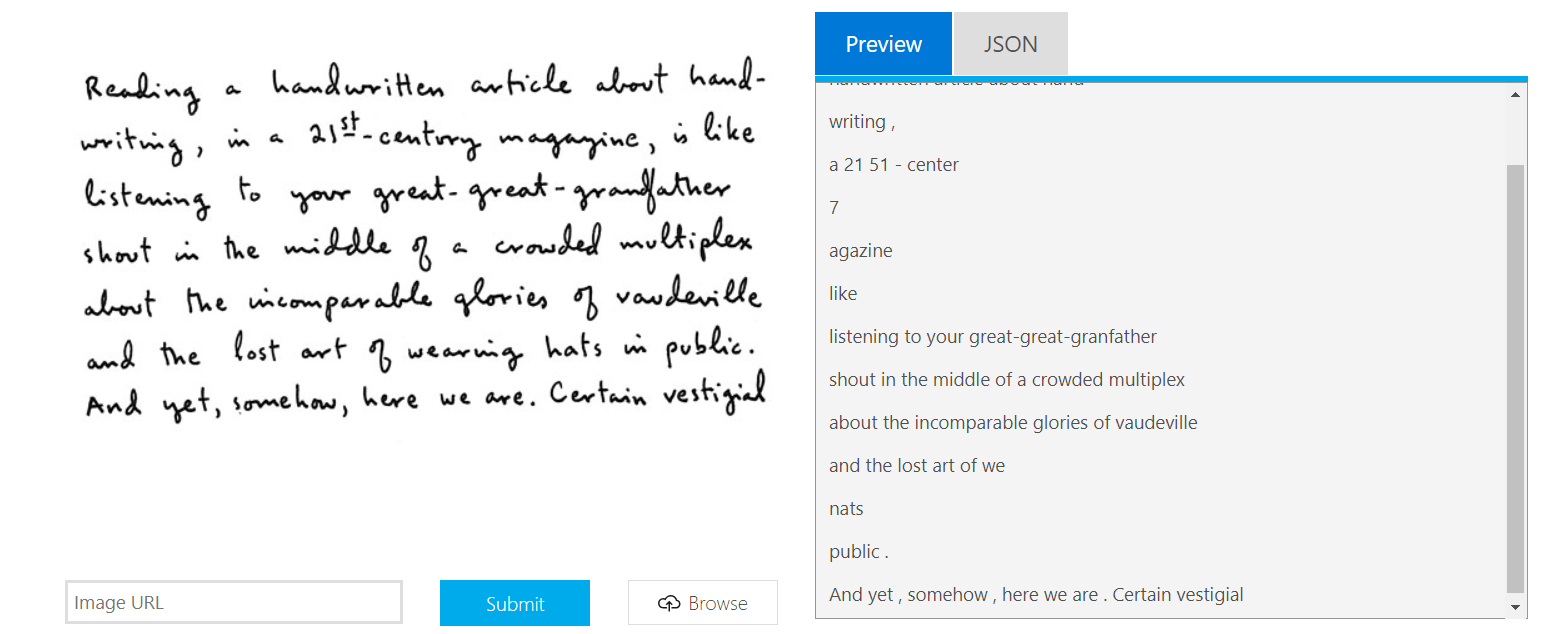 Reading a handwritten article about hand-
writing, in a 21st-century magazine, is like
listening to your great-great-grandfather
shout in the middle of a crowded multiplex
about the incomparable glories of vaudeville
and the lost art of wearing hats in public.
And yet, somehow, here we are. Certain vestigial
Image URL
Submit
Browse
Preview
JSON
handwritten article about hand
writing ,
a 21 51 - center
7
agazine
like
listening to your great-great-granfather
shout in the middle of a crowded multiplex
about the incomparable glories of vaudeville
and the lost art of we
nats
public .
And yet , somehow , here we are . Certain vestigial